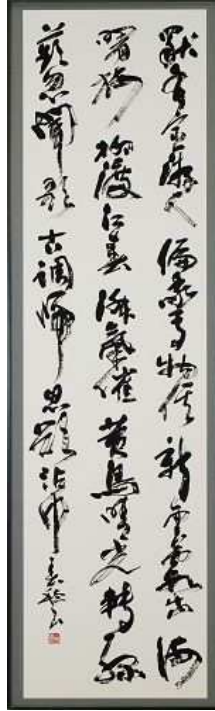 獨有宦遊人偏驚物候新雲霞出海
曙梅柳渡江春淑氣催黃鳥晴光轉綠
蘋忽聞歌古調歸思欲沾巾